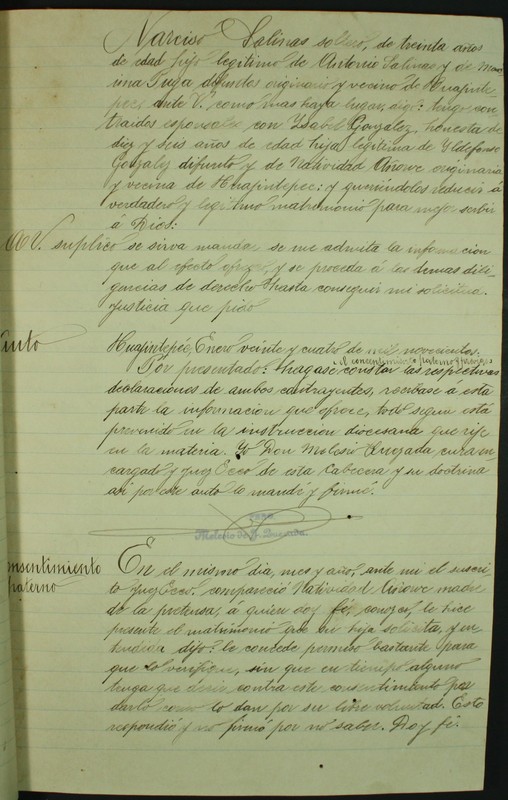 Narciso Salinas soltero, de treinta años
de edad hijo legitimo de Antonio Salinas y de Max
ima Puga difuntos originario y vecino de Huajinte-
pec, ante V. como mas haya lugar, digo: tengo con-
traidos esponsales con Ysabel Gonzalez, honesta de
diez y seis años de edad hija legitima de Yldefonso
Gonzalez difunto y de Natividad originaria
y vecina de Huajintepec: y queriendolos reducir á
verdadero y legitimo matrimonio para mejor servir
á Dios:
A V. suplico se sirva mandar se me admita la informacion
que al efecto ofrezco, y se proceda á las demas dili-
gencias de derecho hasta conseguir mi solicitud.
Justicia que pido
Auto
Huajintepéc, Enero veinte y cuatro de mil novecientos.
el consentimiento paterno y
Por presentado: hagase constar las respectivas
declaraciones de ambos contrayentes, recibase á esta
parte la informacion que ofrece, todo segun está
prevenido en la instruccion diocesana que rije
en la materia. Yo Don Melesio Quezada cura en-
cargado y Juez Ecco. de esta Cabecera y su doctrina
asi por este auto lo mandé y firmé.
Melesio de J. Quezada.
Consentimiento
paterno
En el mismo dia, mes y año, ante mi el suscri-
to Juez Ecco. compareció Natividad madre
de la pretensa, á quien doy fé, conozco, le hice
presente el matrimonio que su hija solicita, y en-
tendida dijo: le concede permiso bastante para
que lo verifique, sin que en tiempo alguno
tenga que decir contra este consentimiento por
darlo como lo dan por su libre voluntad. Esto
respondió y no firmó por no saber. Doy fé.